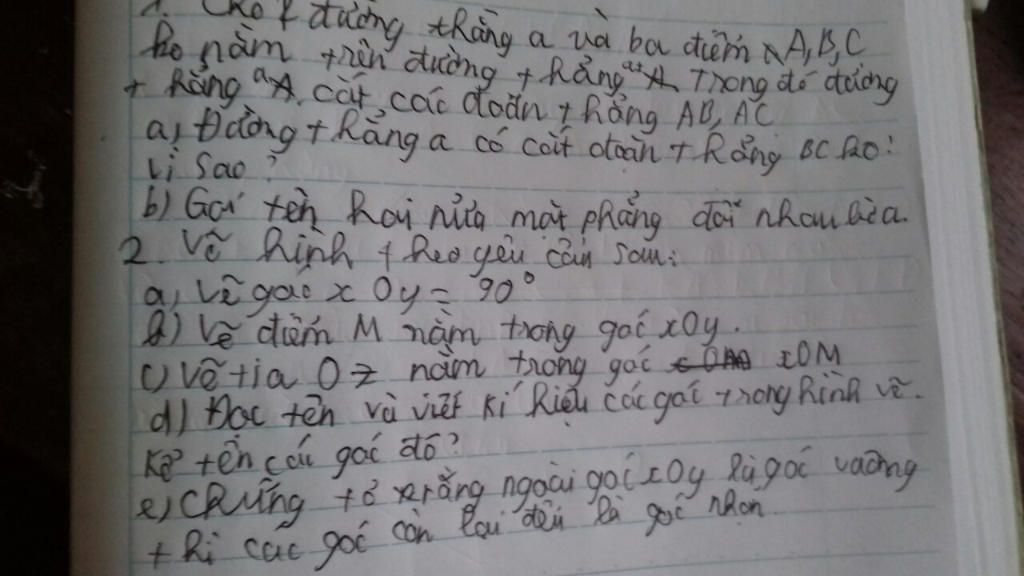 1. Cho 1 đường thẳng a và ba điểm A, B, C
ko nằm trên đường thẳng a. Trong đó đường
thẳng a cắt các đoạn thẳng AB, AC
a, Đường thẳng a có cắt đoạn thẳng BC ko?
Vì sao?
b) Gọi tên hai nửa mặt phẳng đối nhau bờ a.
2. Vẽ hình theo yêu cầu sau:
a, Vẽ góc xOy = 90°
b) Vẽ điểm M nằm trong góc xOy.
c) Vẽ tia Oz nằm trong góc xOM
d) Đọc tên và viết kí hiệu các góc trong hình vẽ.
Kể tên các góc đó?
e) Chứng tỏ rằng ngoài góc xOy là góc vuông
thì các góc còn lại đều là góc nhọn